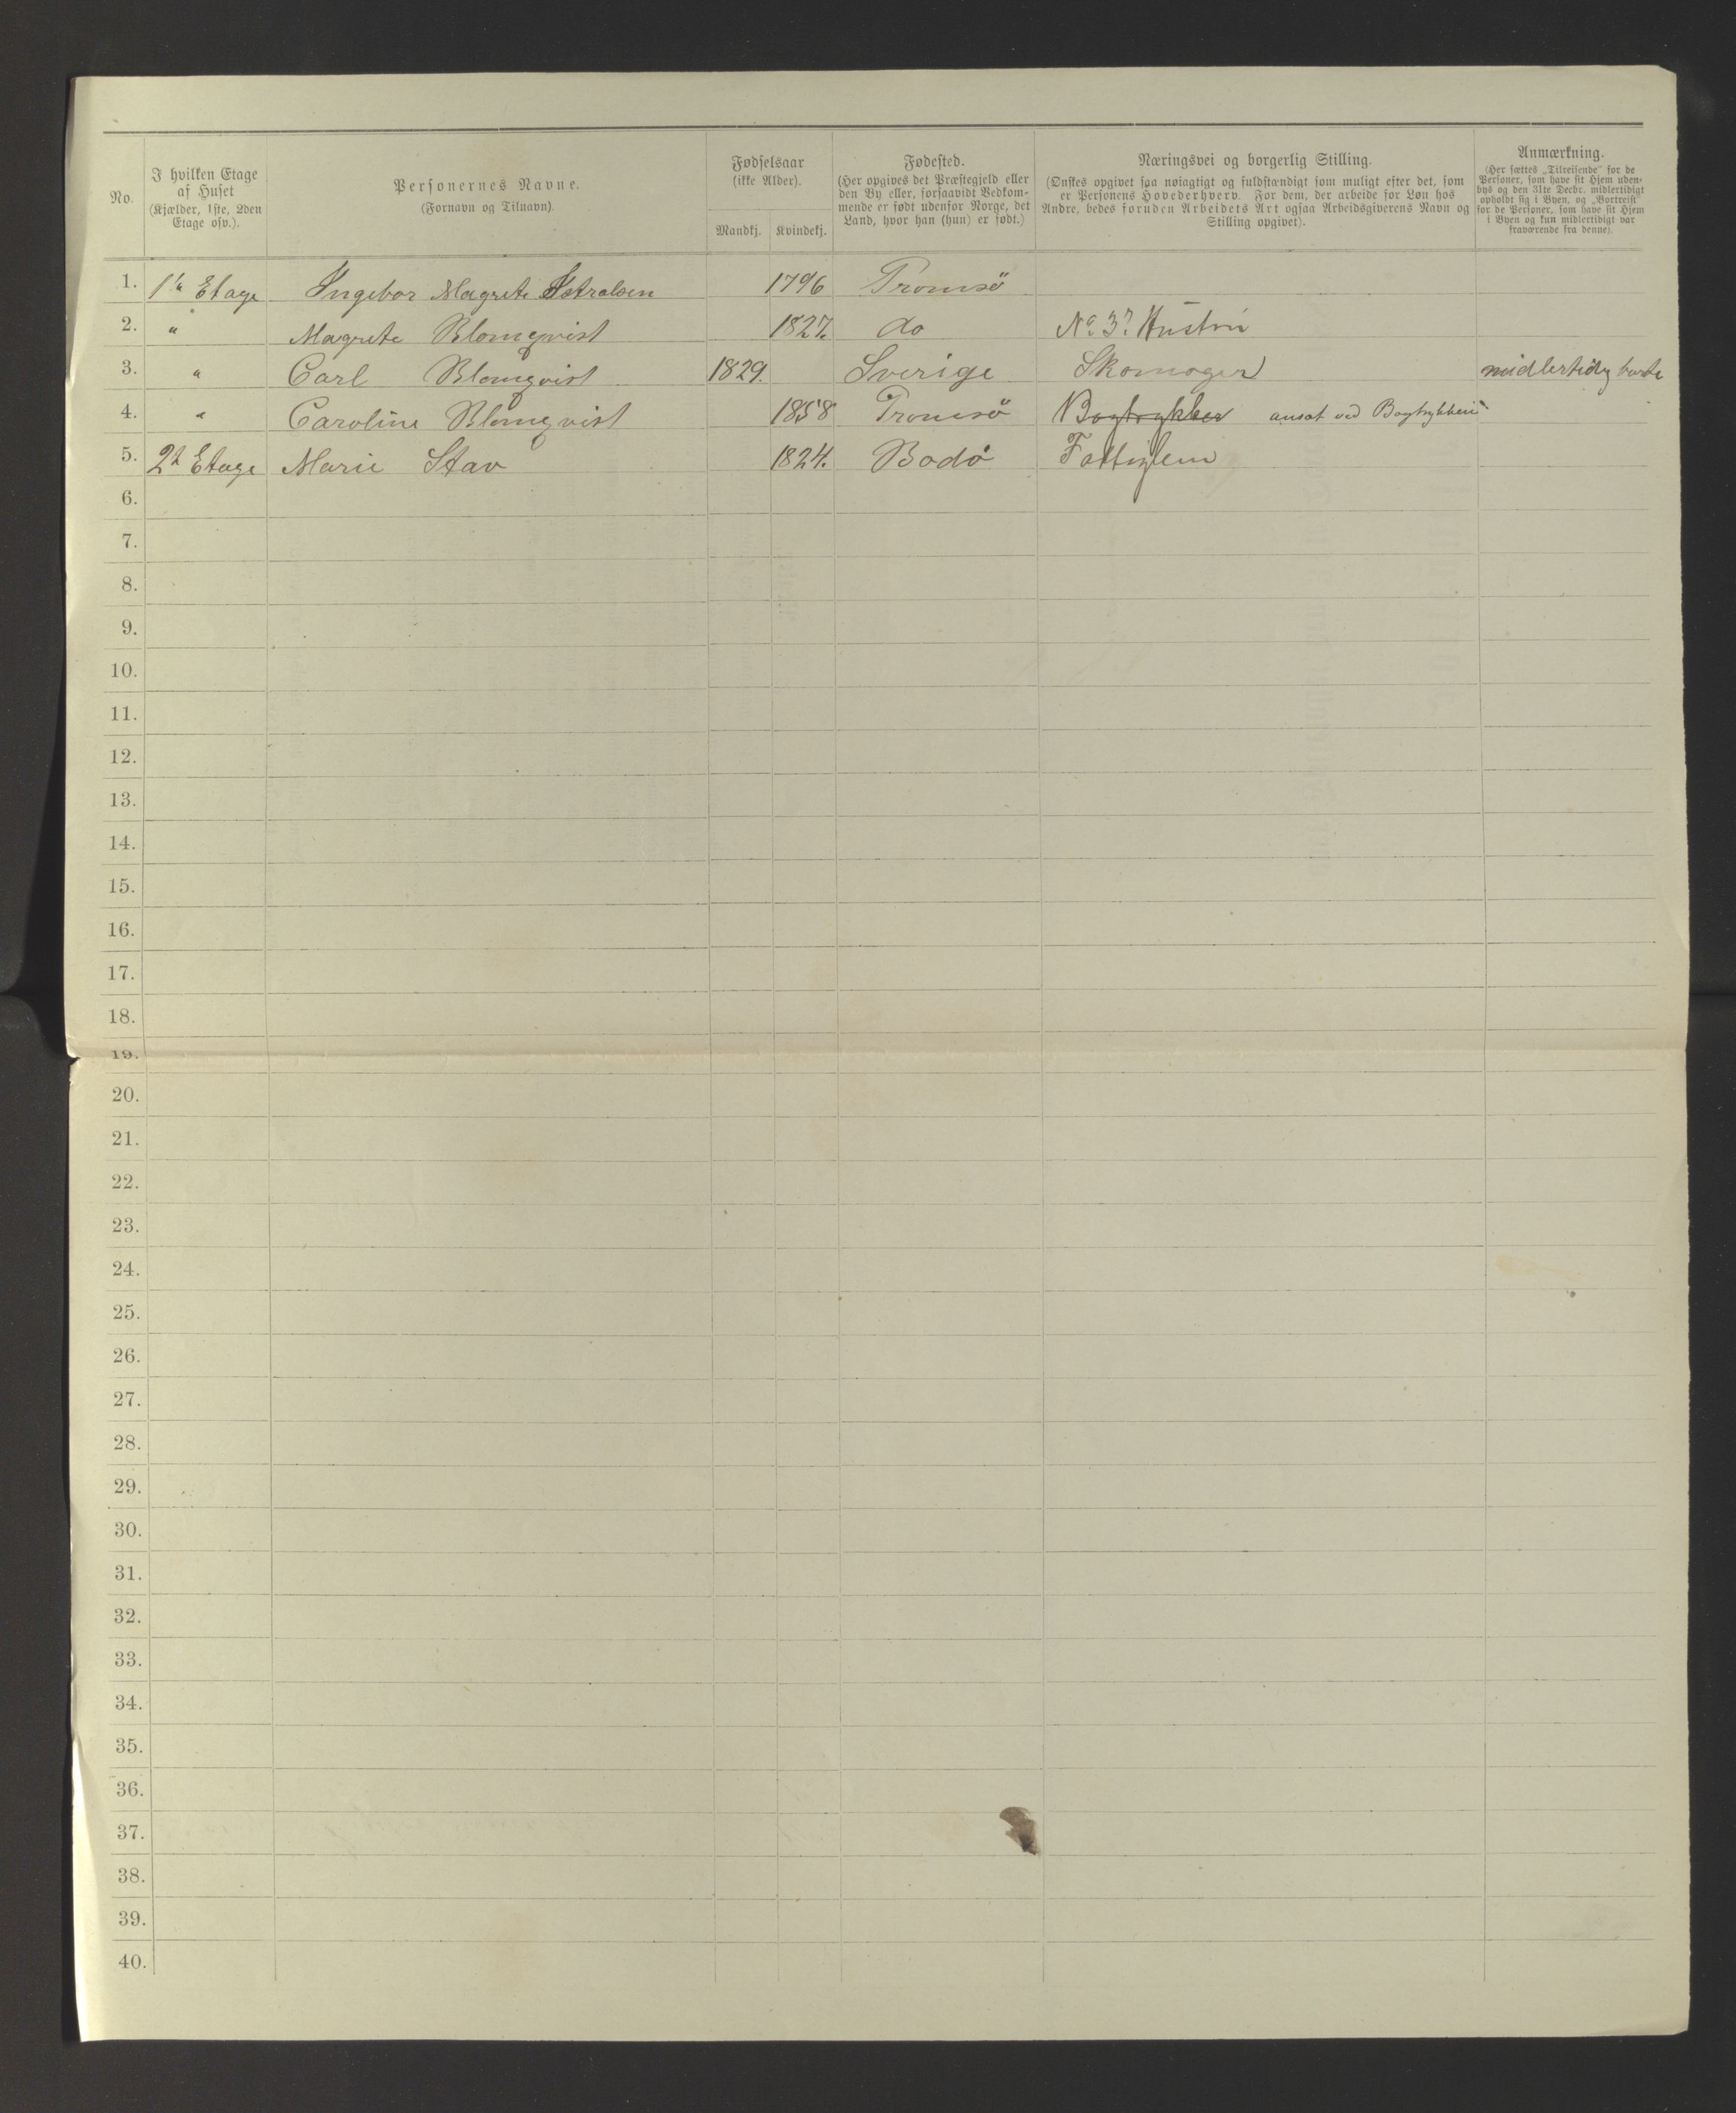 No.
I hvilken Etage
af Huset
(Kjælder, 1ste, 2den
Etage osv.).
Personernes Navne.
(Fornavn og Tilnavn).
Fødselsaar
(ikke Alder).
Mandkj. Kvindekj.
Fødested.
(Her opgives det Præstegjeld eller
den By eller, forsaavidt Vedkom-
mende er født udenfor Norge, det
Land, hvor han (hun) er født.)
Næringsvei og borgerlig Stilling.
(Ønskes opgivet saa nøiagtigt og fuldstændigt som muligt efter det, som
er Personens Hovederhverv. For dem, der arbeide for Løn hos
Andre, bedes foruden Arbeidets Art ogsaa Arbeidsgiverens Navn og
Stilling opgivet).
Anmærkning.
(Her sættes „Tilreisende" for de
Personer, som have sit Hjem uden-
bys og den 31te Decbr. midlertidigt
opholdt sig i Byen, og „Bortreist"
for de Personer, som have sit Hjem
i Byen og kun midlertidigt var
fraværende fra denne).
1. 1ste Etage Ingebor Magrete 1796 Tromsö
2. " Magrete Blomqvist 1827. do No 3s Hustru
3. " Carl Blomqvist 1829. Sverige Skomager midlertidig borte
4. " Caroline Blomqvist 1858 Tromsö Bogtrykker ansat ved Bogtrykkeri
5. 2den Etage Marie Stav 1824. Bodö Fattiglem
6.
7.
8.
9.
10.
11.
12.
13.
14.
15.
16.
17.
18.
19.
20.
21.
22.
23.
24.
25.
26.
27.
28.
29.
30.
31.
32.
33.
34.
35.
36.
37.
38.
39.
40.